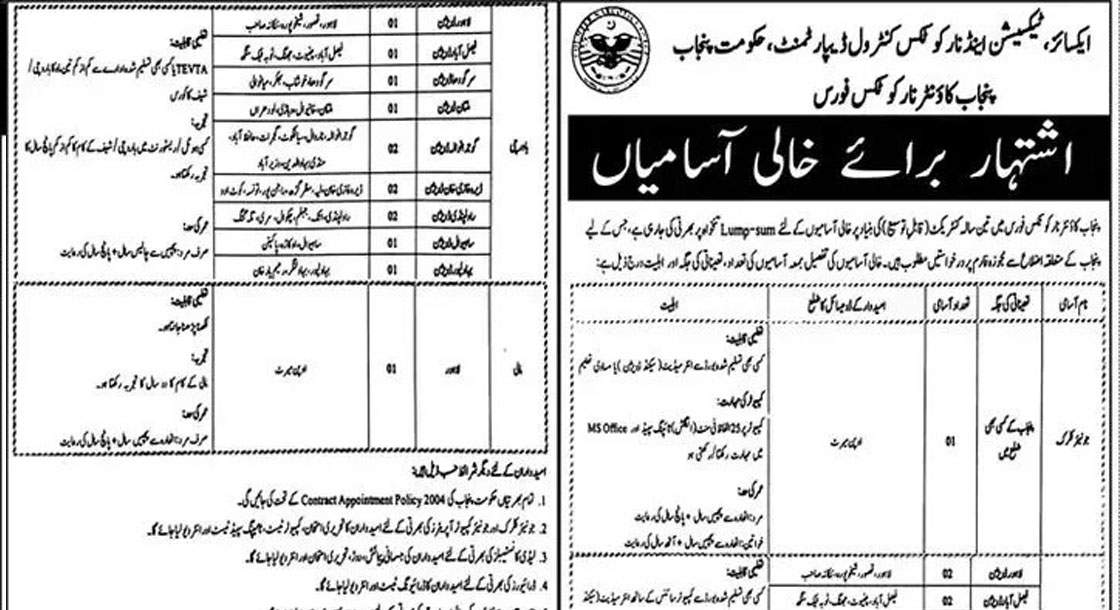 ایکسائز، ٹیکسیشن اینڈ نارکوٹکس کنٹرول ڈیپارٹمنٹ، حکومت پنجاب
پنجاب کاؤنٹر نارکوٹکس فورس
اشتہار برائے خالی آسامیاں
پنجاب کاؤنٹر نارکوٹکس فورس میں تین سالہ کنٹریکٹ (قابل توسیع) کی بنیاد پر خالی آسامیوں کے لئے Lump-sum تنخواہ پر بھرتی کی جاری ہے، جس کے لیے
پنجاب کے متعلقہ اضلاع سے مجوزہ فارم پر درخواستیں مطلوب ہیں۔ خالی آسامیوں کی تفصیل بمعہ آسامیوں کی تعداد، تعیناتی کی جگہ اور اہلیت درج ذیل ہے:
نام آسامی تعیناتی کی جگہ تعداد آسامی امیدوار کے ڈومیسائل کا ضلع اہلیت
جونیئر کلرک پنجاب کے کسی بھی ضلع میں 01 اوپن میرٹ
تعلیمی قابلیت:
کسی بھی تسلیم شدہ بورڈ سے انٹرمیڈیٹ (سیکنڈ ڈویژن) یا مساوی تعلیم
کمپیوٹر کی مہارت:
کمپیوٹر پر 25 الفاظ فی منٹ (انگلش) ٹائپنگ سپیڈ اور MS Office
میں مہارت رکھتا/رکھتی ہو
عمر کی حد:
مرد: اٹھارہ سے پچیس سال + پانچ سال کی رعایت
خواتین: اٹھارہ سے پچیس سال + آٹھ سال کی رعایت
لاہور ڈویژن 02 لاہور، قصور، شیخوپورہ، ننکانہ صاحب
فیصل آباد ڈویژن 02 فیصل آباد، چنیوٹ، جھنگ، ٹوبہ ٹیک سنگھ
تعلیمی قابلیت:
کسی بھی تسلیم شدہ بورڈ سے کمپیوٹر سائنس کے ساتھ انٹرمیڈیٹ (سیکنڈ
باورچی
لاہور ڈویژن 01 لاہور، قصور، شیخوپورہ، ننکانہ صاحب
فیصل آباد ڈویژن 01 فیصل آباد، چنیوٹ، جھنگ، ٹوبہ ٹیک سنگھ
سرگودھا ڈویژن 01 سرگودھا، خوشاب، بھکر، میانوالی
ملتان ڈویژن 01 ملتان، خانیوال، وہاڑی، لودھراں
گوجرانوالہ ڈویژن 02 گوجرانوالہ، نارووال، سیالکوٹ، گجرات، حافظ آباد،
منڈی بہاؤالدین، وزیر آباد
ڈیرہ غازی خان ڈویژن 02 ڈیرہ غازی خان، لیہ، مظفر گڑھ، راجن پور، تونسہ، کوٹ ادو
راولپنڈی ڈویژن 02 راولپنڈی، اٹک، جہلم، چکوال، مری، تلہ گنگ
ساہیوال ڈویژن 01 ساہیوال، اوکاڑہ، پاکپتن
بہاولپور ڈویژن 01 بہاولپور، بہاولنگر، رحیم یار خان
تعلیمی قابلیت:
TEVTA یا کسی بھی تسلیم شدہ ادارے سے کم از کم تین ماہ کا باورچی/
شیف کا کورس
تجربہ:
کسی ہوٹل/ریسٹورنٹ میں باورچی/شیف کے کام کا کم از کم پانچ سال کا
تجربہ رکھتا ہو۔
عمر کی حد:
صرف مرد: پچیس سے چالیس سال + پانچ سال کی رعایت
مالی لاہور 01 اوپن میرٹ
تعلیمی قابلیت:
لکھنا پڑھنا جانتا ہو۔
تجربہ:
مالی کے کام کا دو سال کا تجربہ رکھتا ہو۔
عمر کی حد:
صرف مرد: اٹھارہ سے پچیس سال + پانچ سال کی رعایت
امیدواران کے لئے دیگر شرائط حسب ذیل ہیں:
1. تمام بھرتیاں حکومت پنجاب کی Contract Appointment Policy 2004 کے تحت کی جائیں گی۔
2. جونیئر کلرک اور جونیئر کمپیوٹر آپریٹرز کی بھرتی کے لئے امیدواران کا تحریری امتحان، کمپیوٹر ٹیسٹ، ٹائپنگ سپیڈ ٹیسٹ اور انٹرویو لیا جائے گا۔
3. لیڈی کانسٹیبلز کی بھرتی کے لئے امیدواران کی جسمانی پیمائش، دوڑ، تحریری امتحان اور انٹرویو لیا جائے گا۔
4. ڈرائیورز کی بھرتی کے لئے امیدواران کا ڈرائیونگ ٹیسٹ اور انٹرویو لیا جائے گا۔